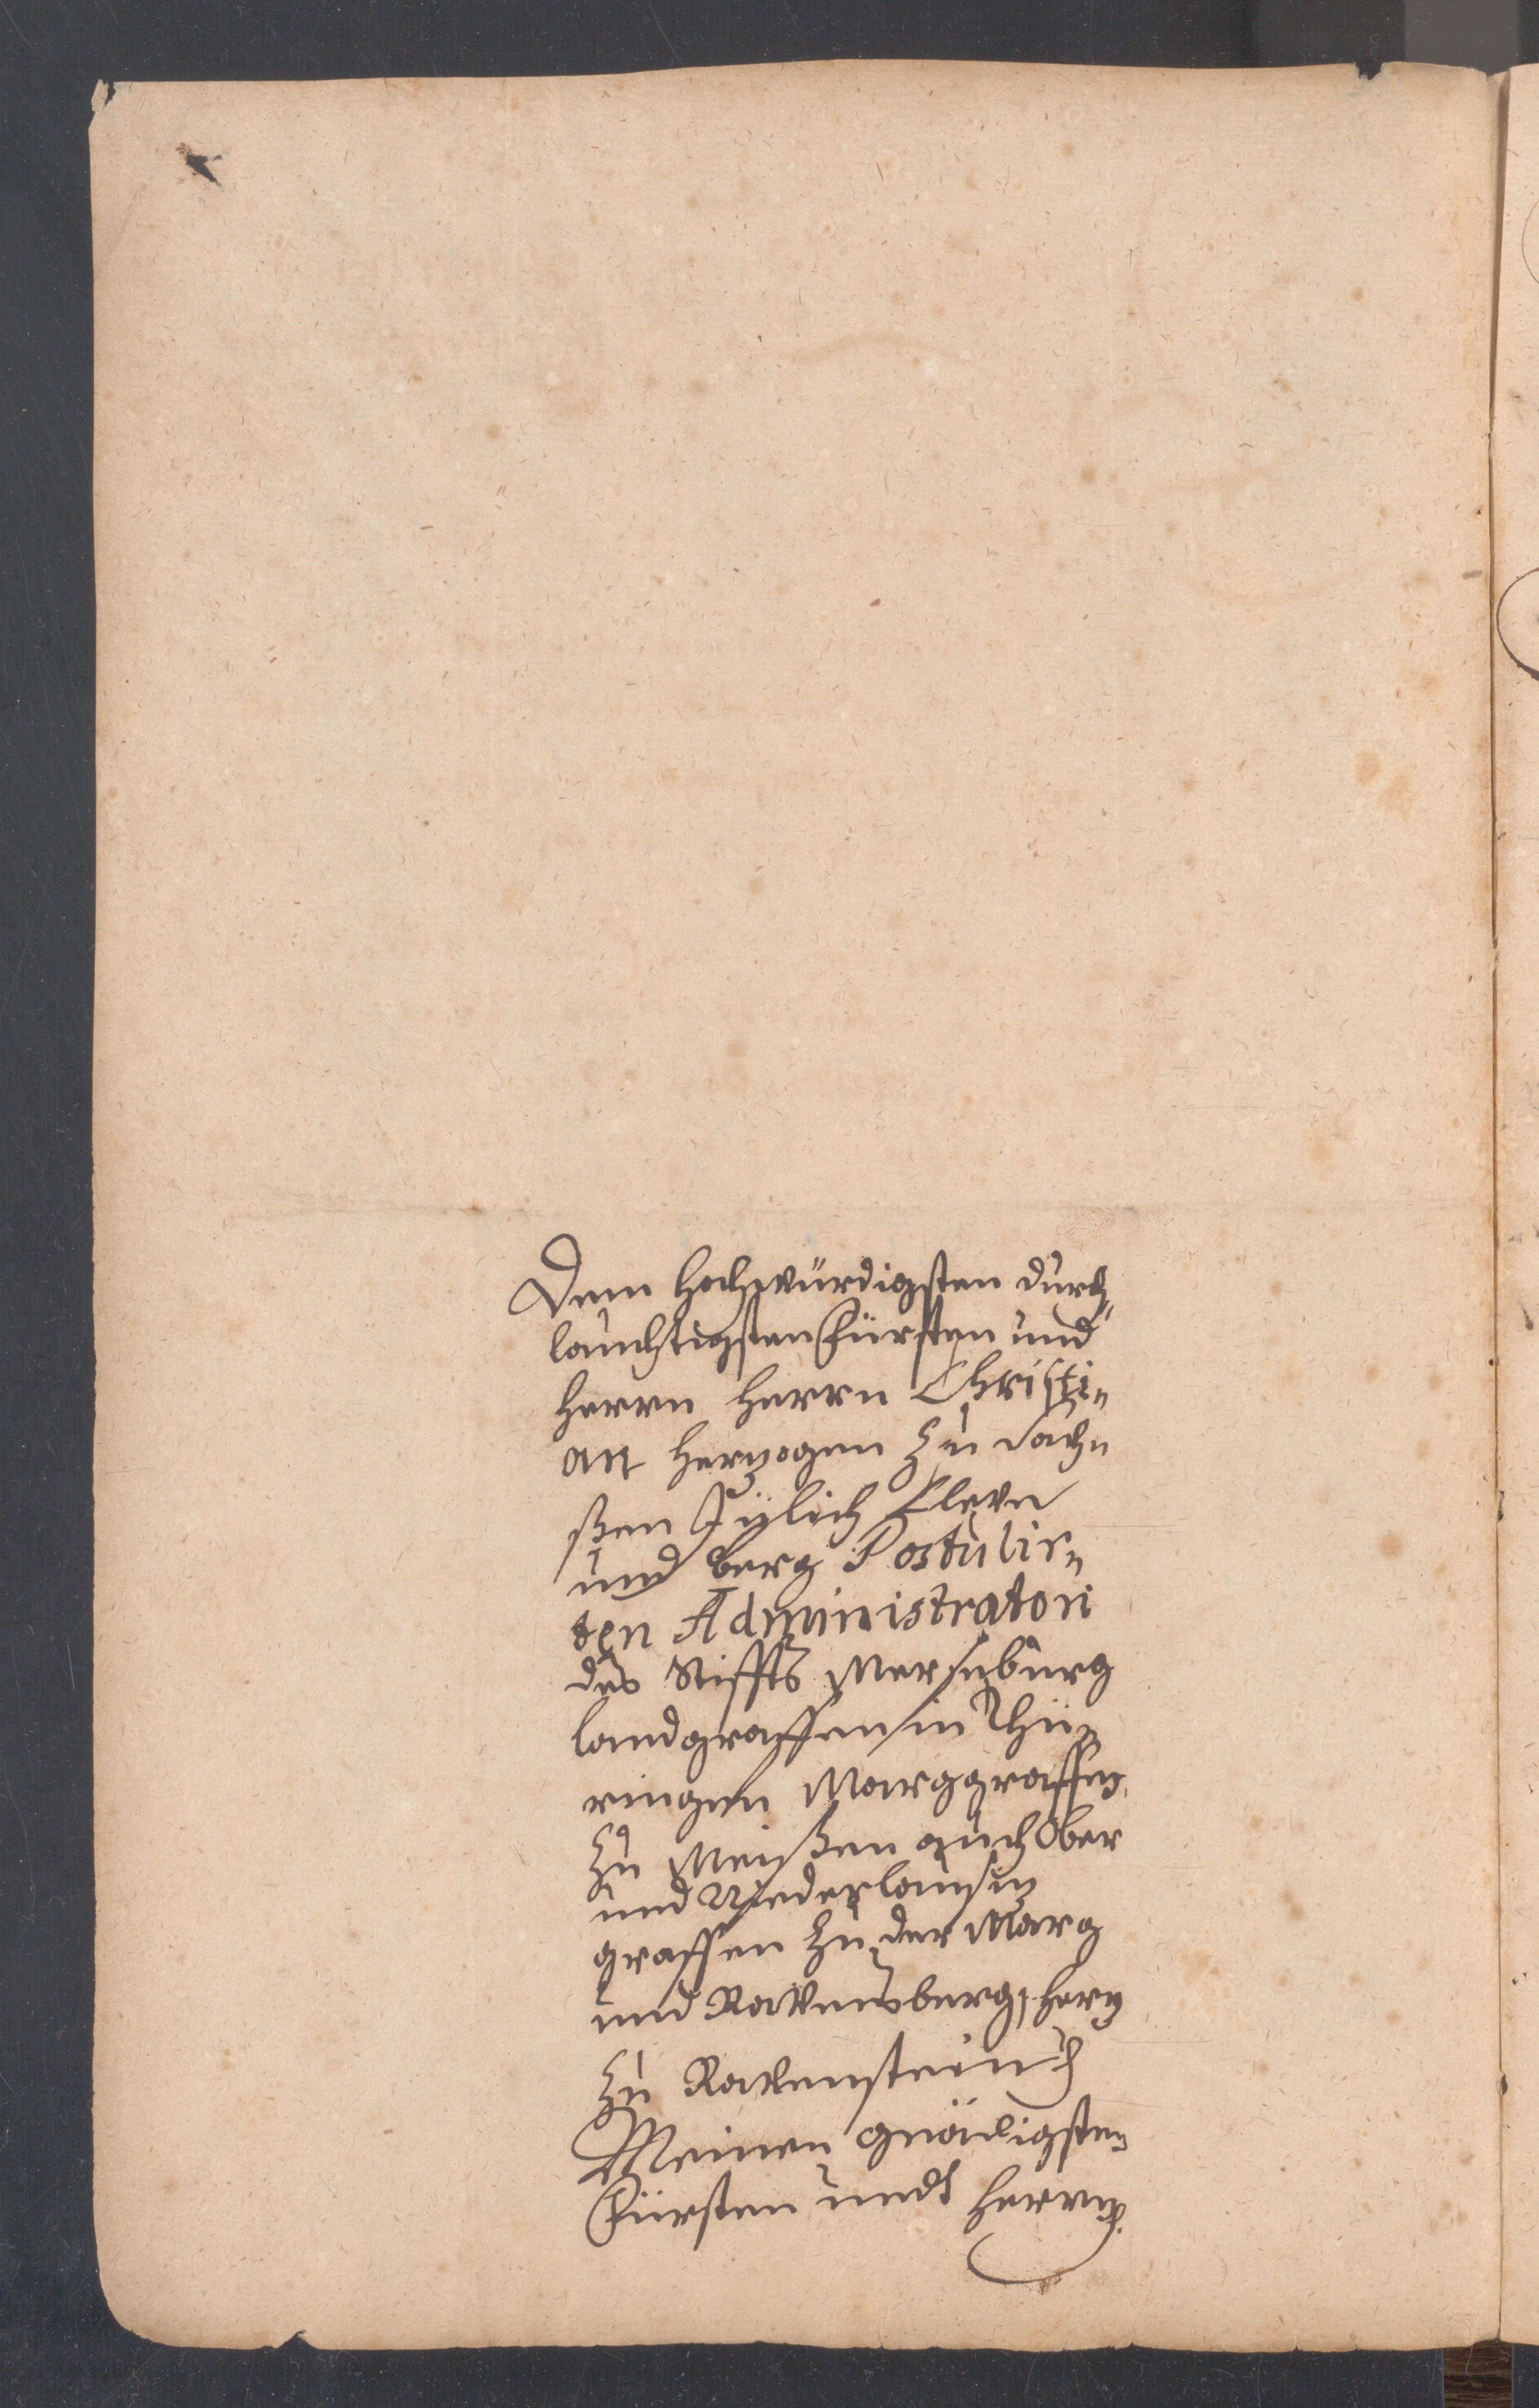 Dem Hochwürdigsten Durch„
lauchtigsten Fürsten und
Herrn Herrn Christi„
an Herzogen Zu Sach„
ßen Jülich Cleve
und Berg Postulir„
ten Administratori
des Stiffts Merseburg
Landgraffen in Thü„
ringen Marggraffen
Zu Meißen auch Ober
und Niederlausitz
graffen Zu der Marg
und Ravensberg, Herr
Zu Ravenstein
Meinen gnädigsten
Fürsten undt Herrn